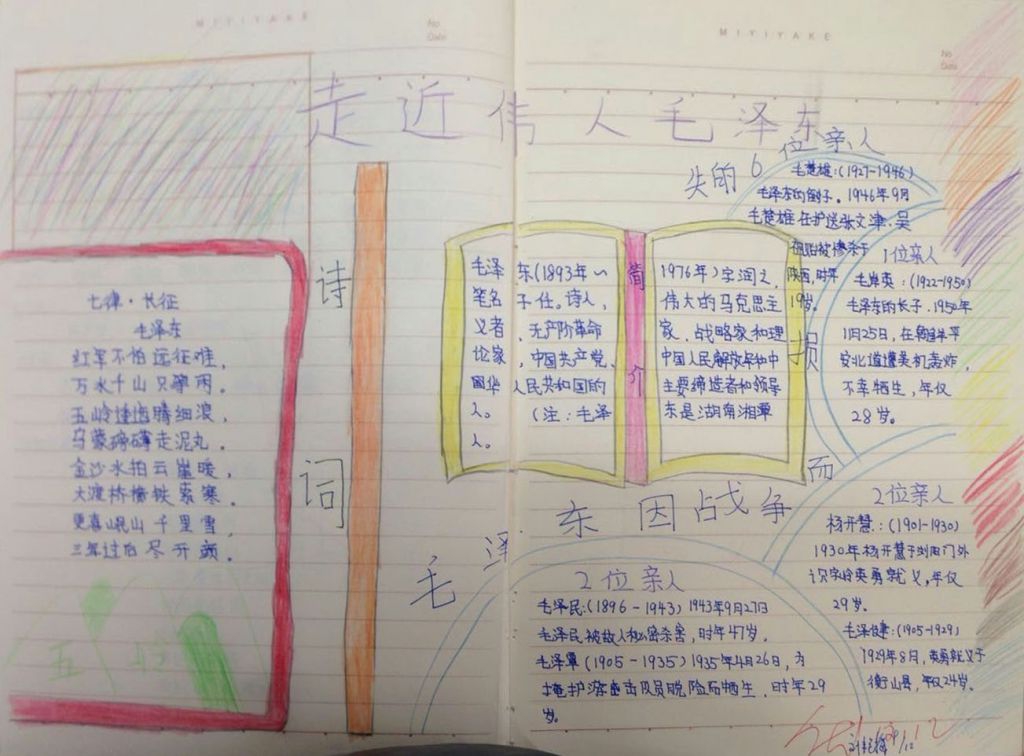 MIYIYAKE
No
Date
MIYIYAKE
No
Date
走近伟人毛泽东
诗词
七律·长征
毛泽东
红军不怕远征难，
万水千山只等闲。
五岭逶迤腾细浪，
乌蒙磅礴走泥丸。
金沙水拍云崖暖，
大渡桥横铁索寒。
更喜岷山千里雪，
三军过后尽开颜。
简介
毛泽东(1893年～
笔名子任。诗人，
义者，无产阶革命
论家，中国共产党、
国华人民共和国的
人。（注：毛泽
人。
1976年)字润之，
伟大的马克思主
家，战略家和理
中国人民解放军和中
主要缔造者和领导
东是湖南湘潭
毛泽东因战争而损失的6位亲人
毛楚雄:(1927-1946)
毛泽东的侄子。1946年9月
毛楚雄在护送张文津、吴
祖贻被惨杀于
陕西，时年
19岁。
1位亲人
毛岸英：(1922-1950)
毛泽东的长子。1950年
11月25日，在朝鲜平
安北道遭美机轰炸，
不幸牺生，年仅
28岁。
2位亲人
杨开慧：(1901-1930)
1930年杨开慧于浏阳门外
识字岭英勇就义，年仅
29岁。
毛泽建:(1905-1929)
1929年8月，英勇就义于
衡山县，年仅24岁。
2位亲人
毛泽民:(1896-1943) 1943年9月27日
毛泽民被敌人秘密杀害，时年47岁。
毛泽覃(1905-1935) 1935年4月26日，为
掩护游击队员脱险而牺生，时年29
岁。